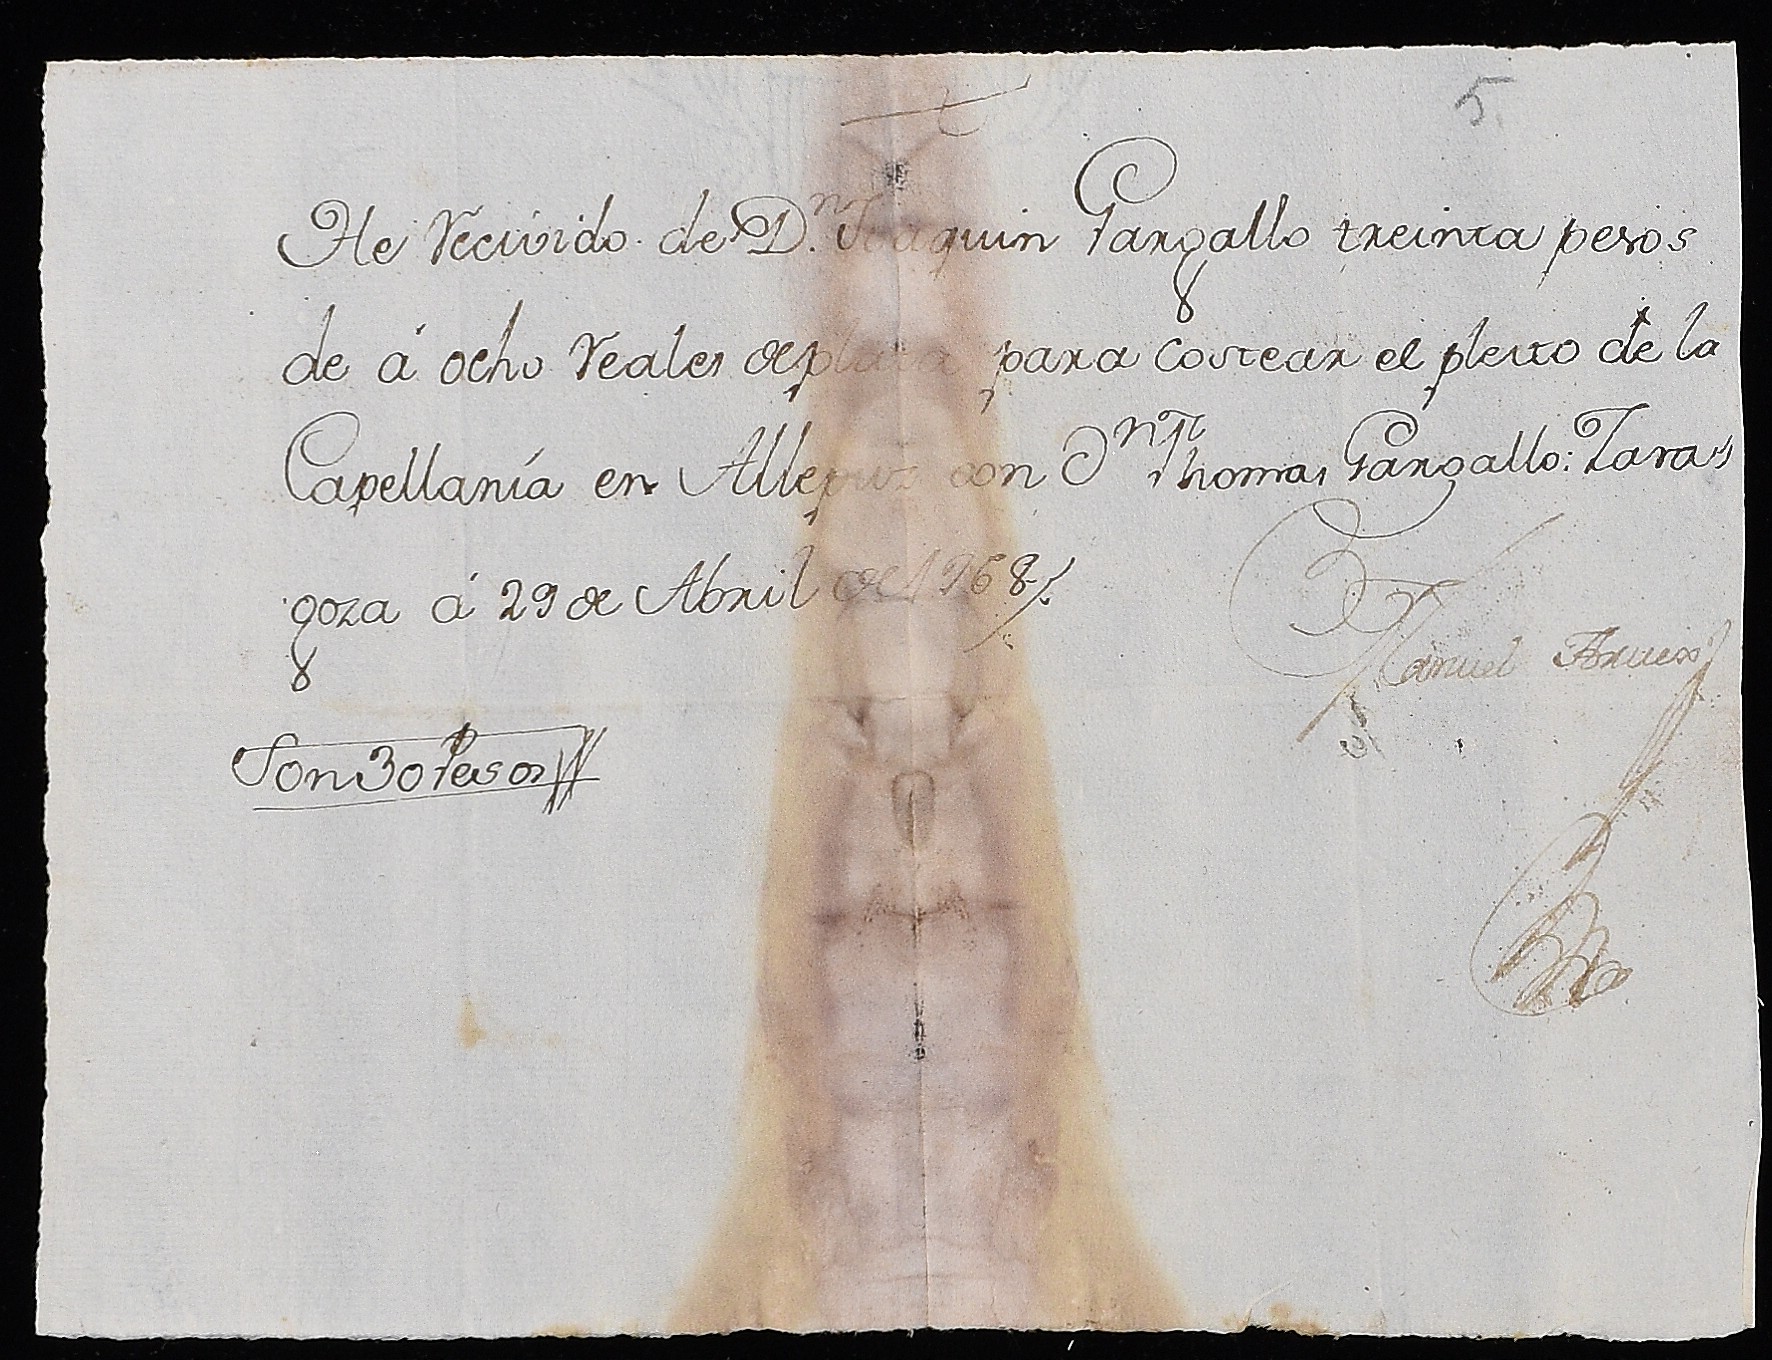 5.
He recivido de Dn. Joaquin Gargallo treinta pesos
de á ocho reales de plata para costear el pleito de la
Capellanía en Allepuz con Dn Thomas Gargallo: Zara
goza á 29 de Abril de 1768
Manuel
Son 30 Pesos